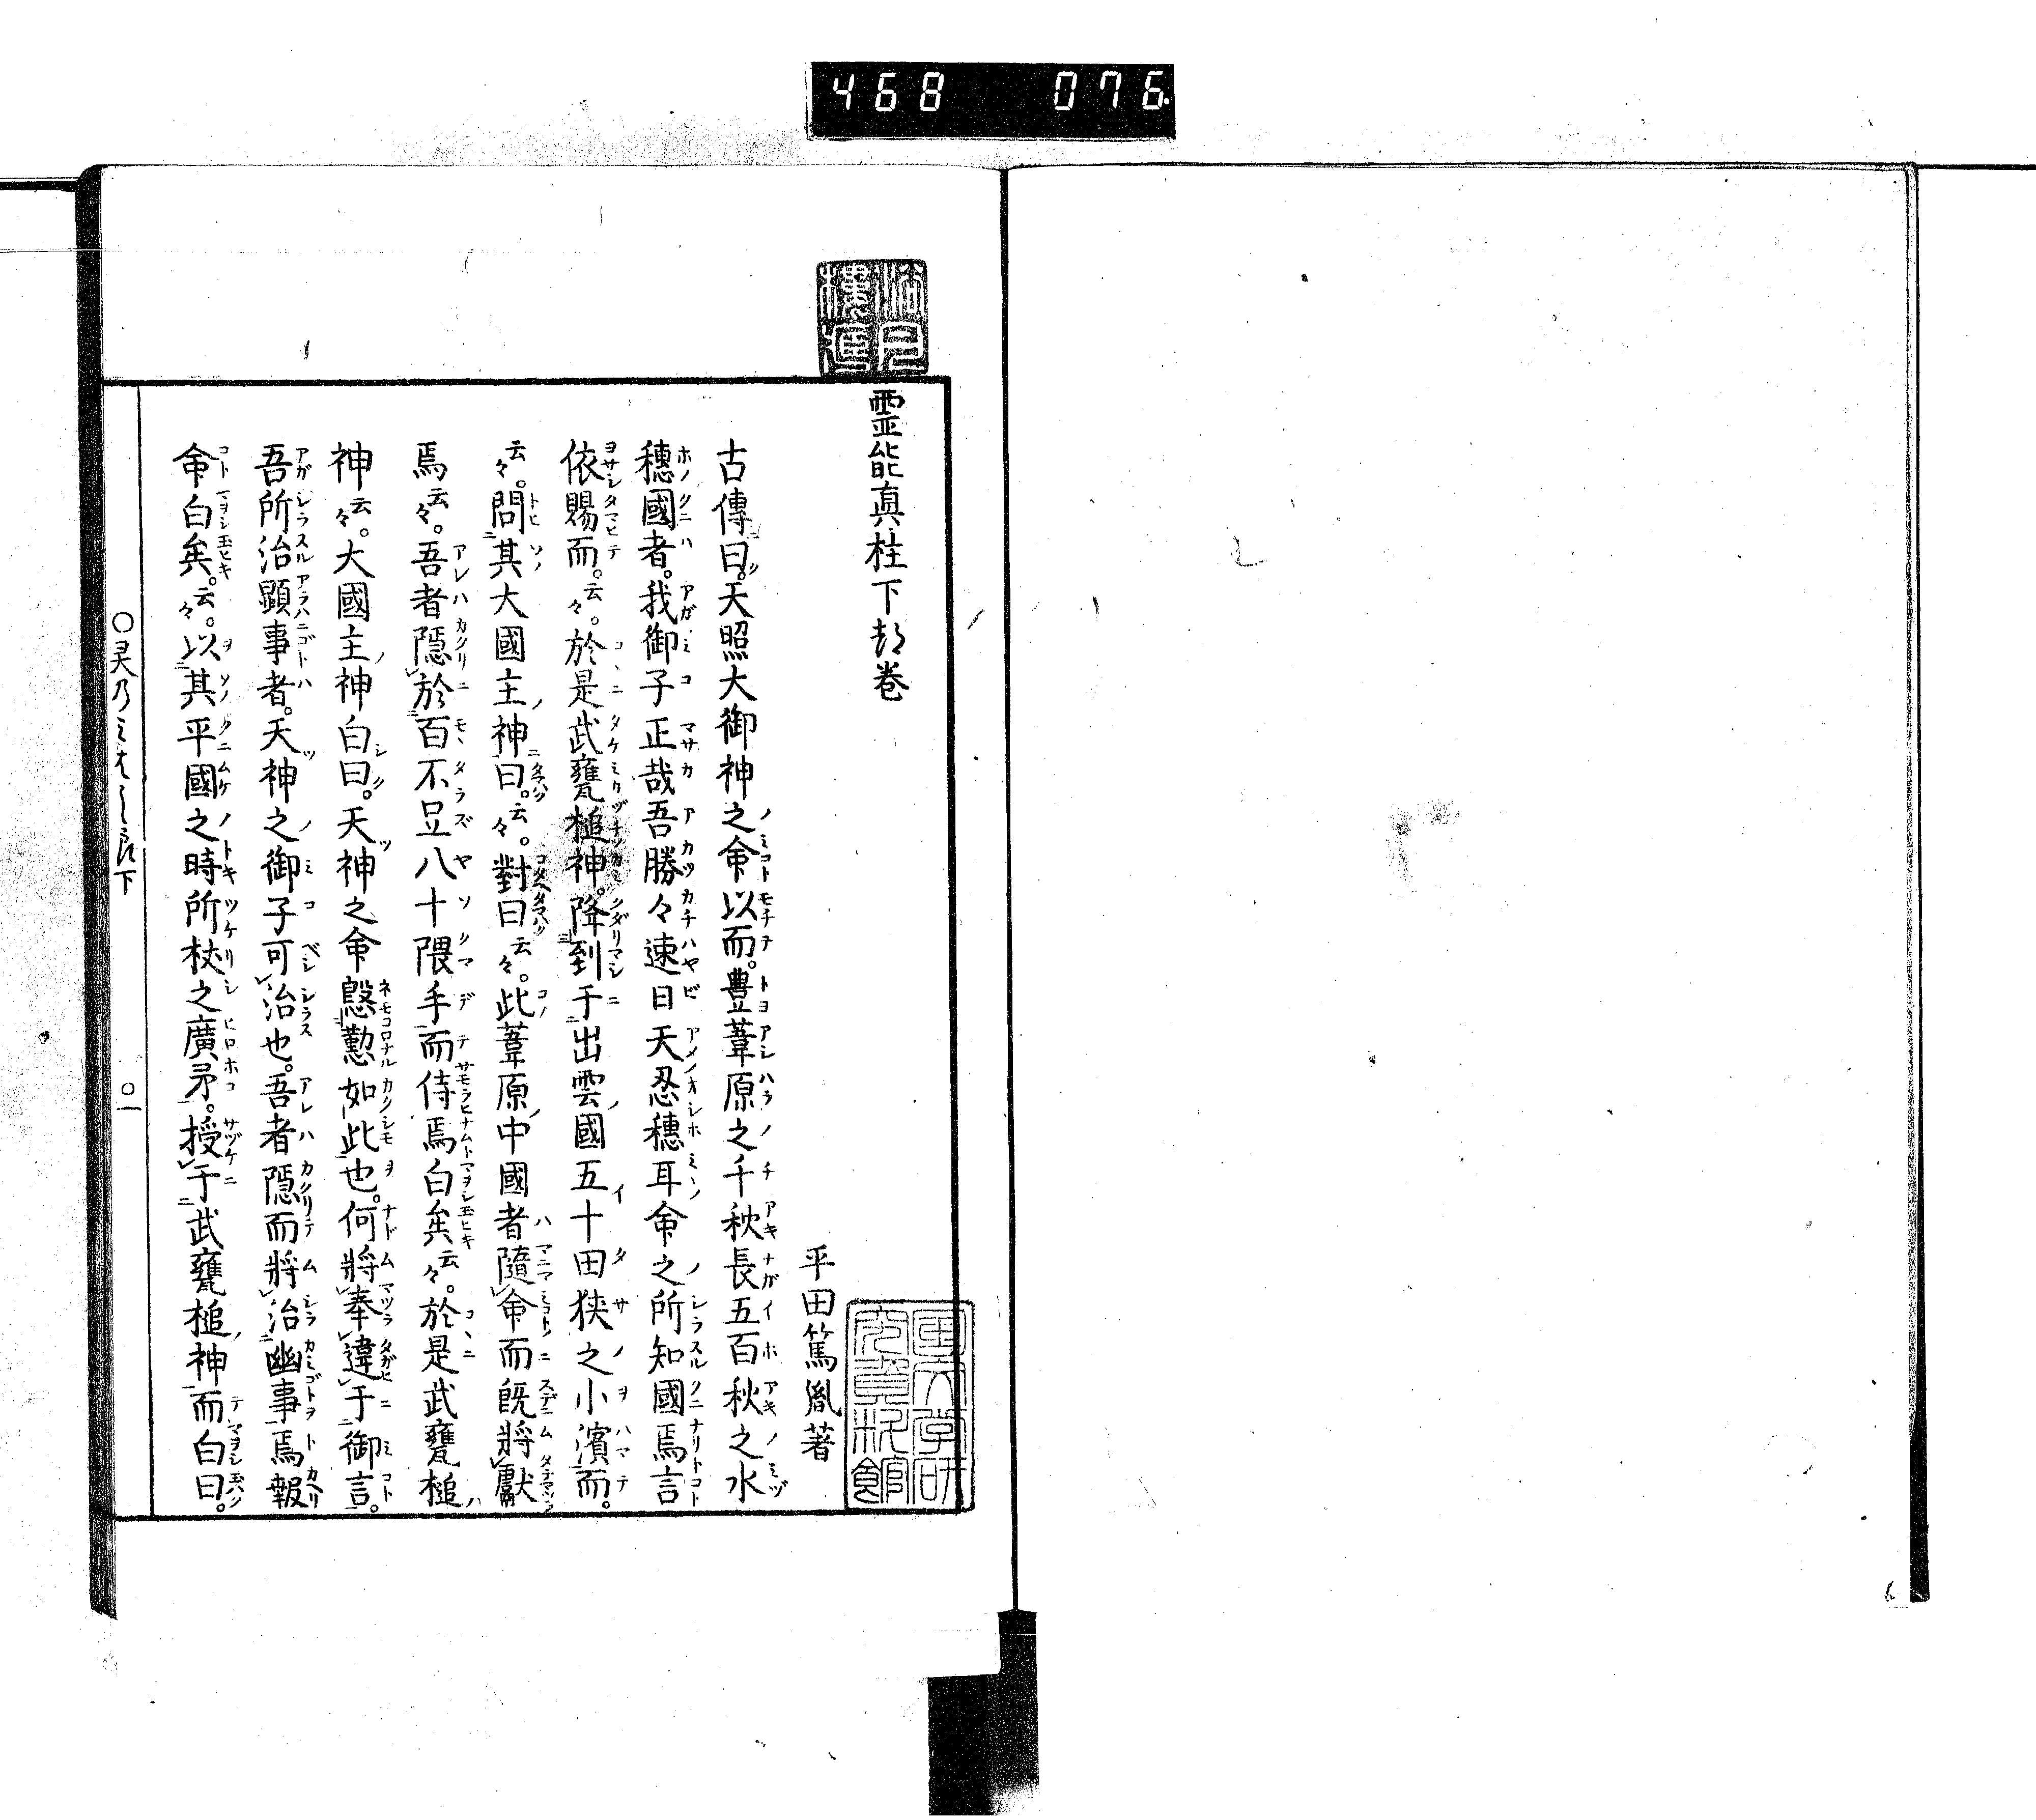 468 076
靈能眞柱下都卷
平田篤胤著
古傳曰。天照大御神之命以而。豊葦原之千秋長五百秋之水
穗國者。我御子正哉吾勝々速日天忍穗耳命之所知國焉言
依賜而。云々。於是武甕槌神。降到于出雲國五十田狹之小濱而。
云々。問其大國主神曰。云々。對曰云々。此葦原中國者隨命而既將獻
焉云々。吾者隱於百不足八十隈手而侍焉白矣云々。於是武甕槌
神云々。大國主神白曰。天神之命慇懃如此也。何將奉違于御言。
吾所治顯事者。天神之御子可治也。吾者隱而將治幽事焉報
命白矣。云々。以其平國之時所杖之廣矛。授于武甕槌神而白曰。
下
〇一